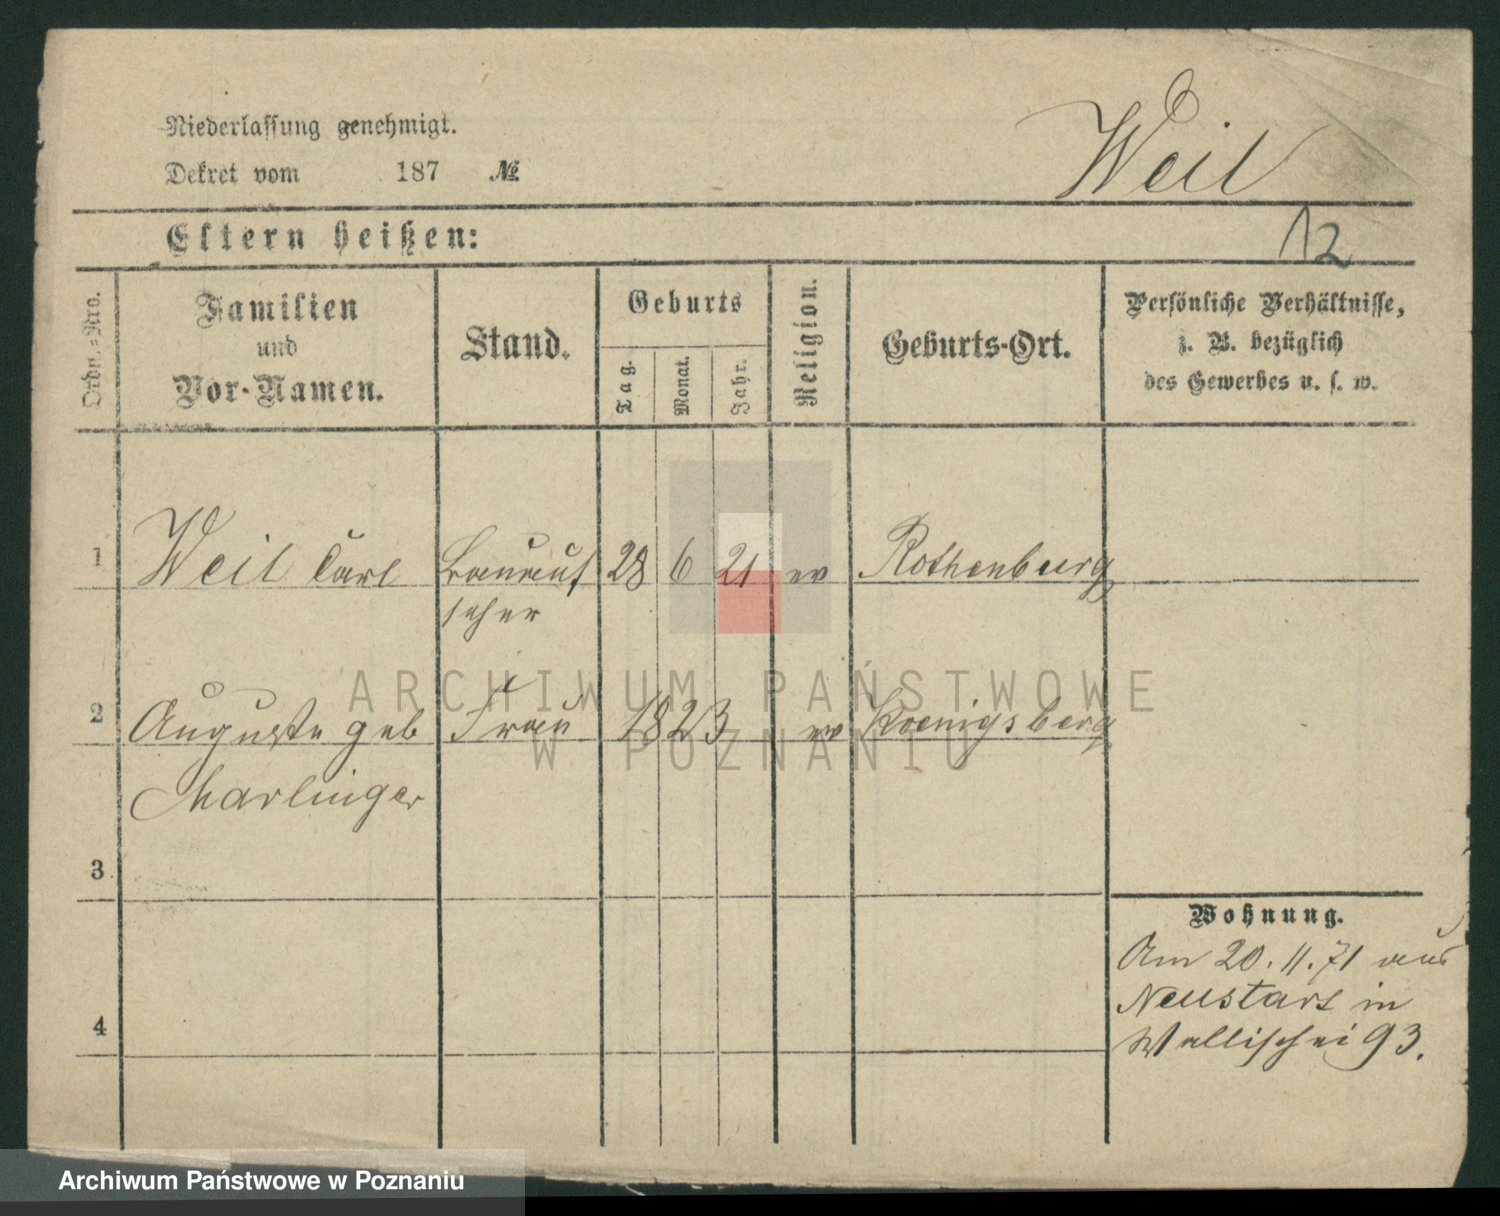 Niederlassung genehmigt.
Dekret vom 187 №
Weil
Eltern heißen:
12
Ordn.-Nro.
Familien
und
Vor-Namen.
Stand.
Geburts
Tag.
Monat.
Jahr.
Religion.
Geburts-Ort.
Persönliche Verhältnisse,
z. B. bezüglich
des Gewerbes u. s. w.
1 Weil Carl Bauauf 28 6 21 ev Rothenburg
seher
2 Auguste geb Frau 1823 ev Koenigsberg
Marlinger
3
4
Wohnung.
Am 20. 11. 71 aus
Neustadt in
Wallischei 93.
ARCHIWUM PAŃSTWOWE
W POZNANIU
Archiwum Państwowe w Poznaniu